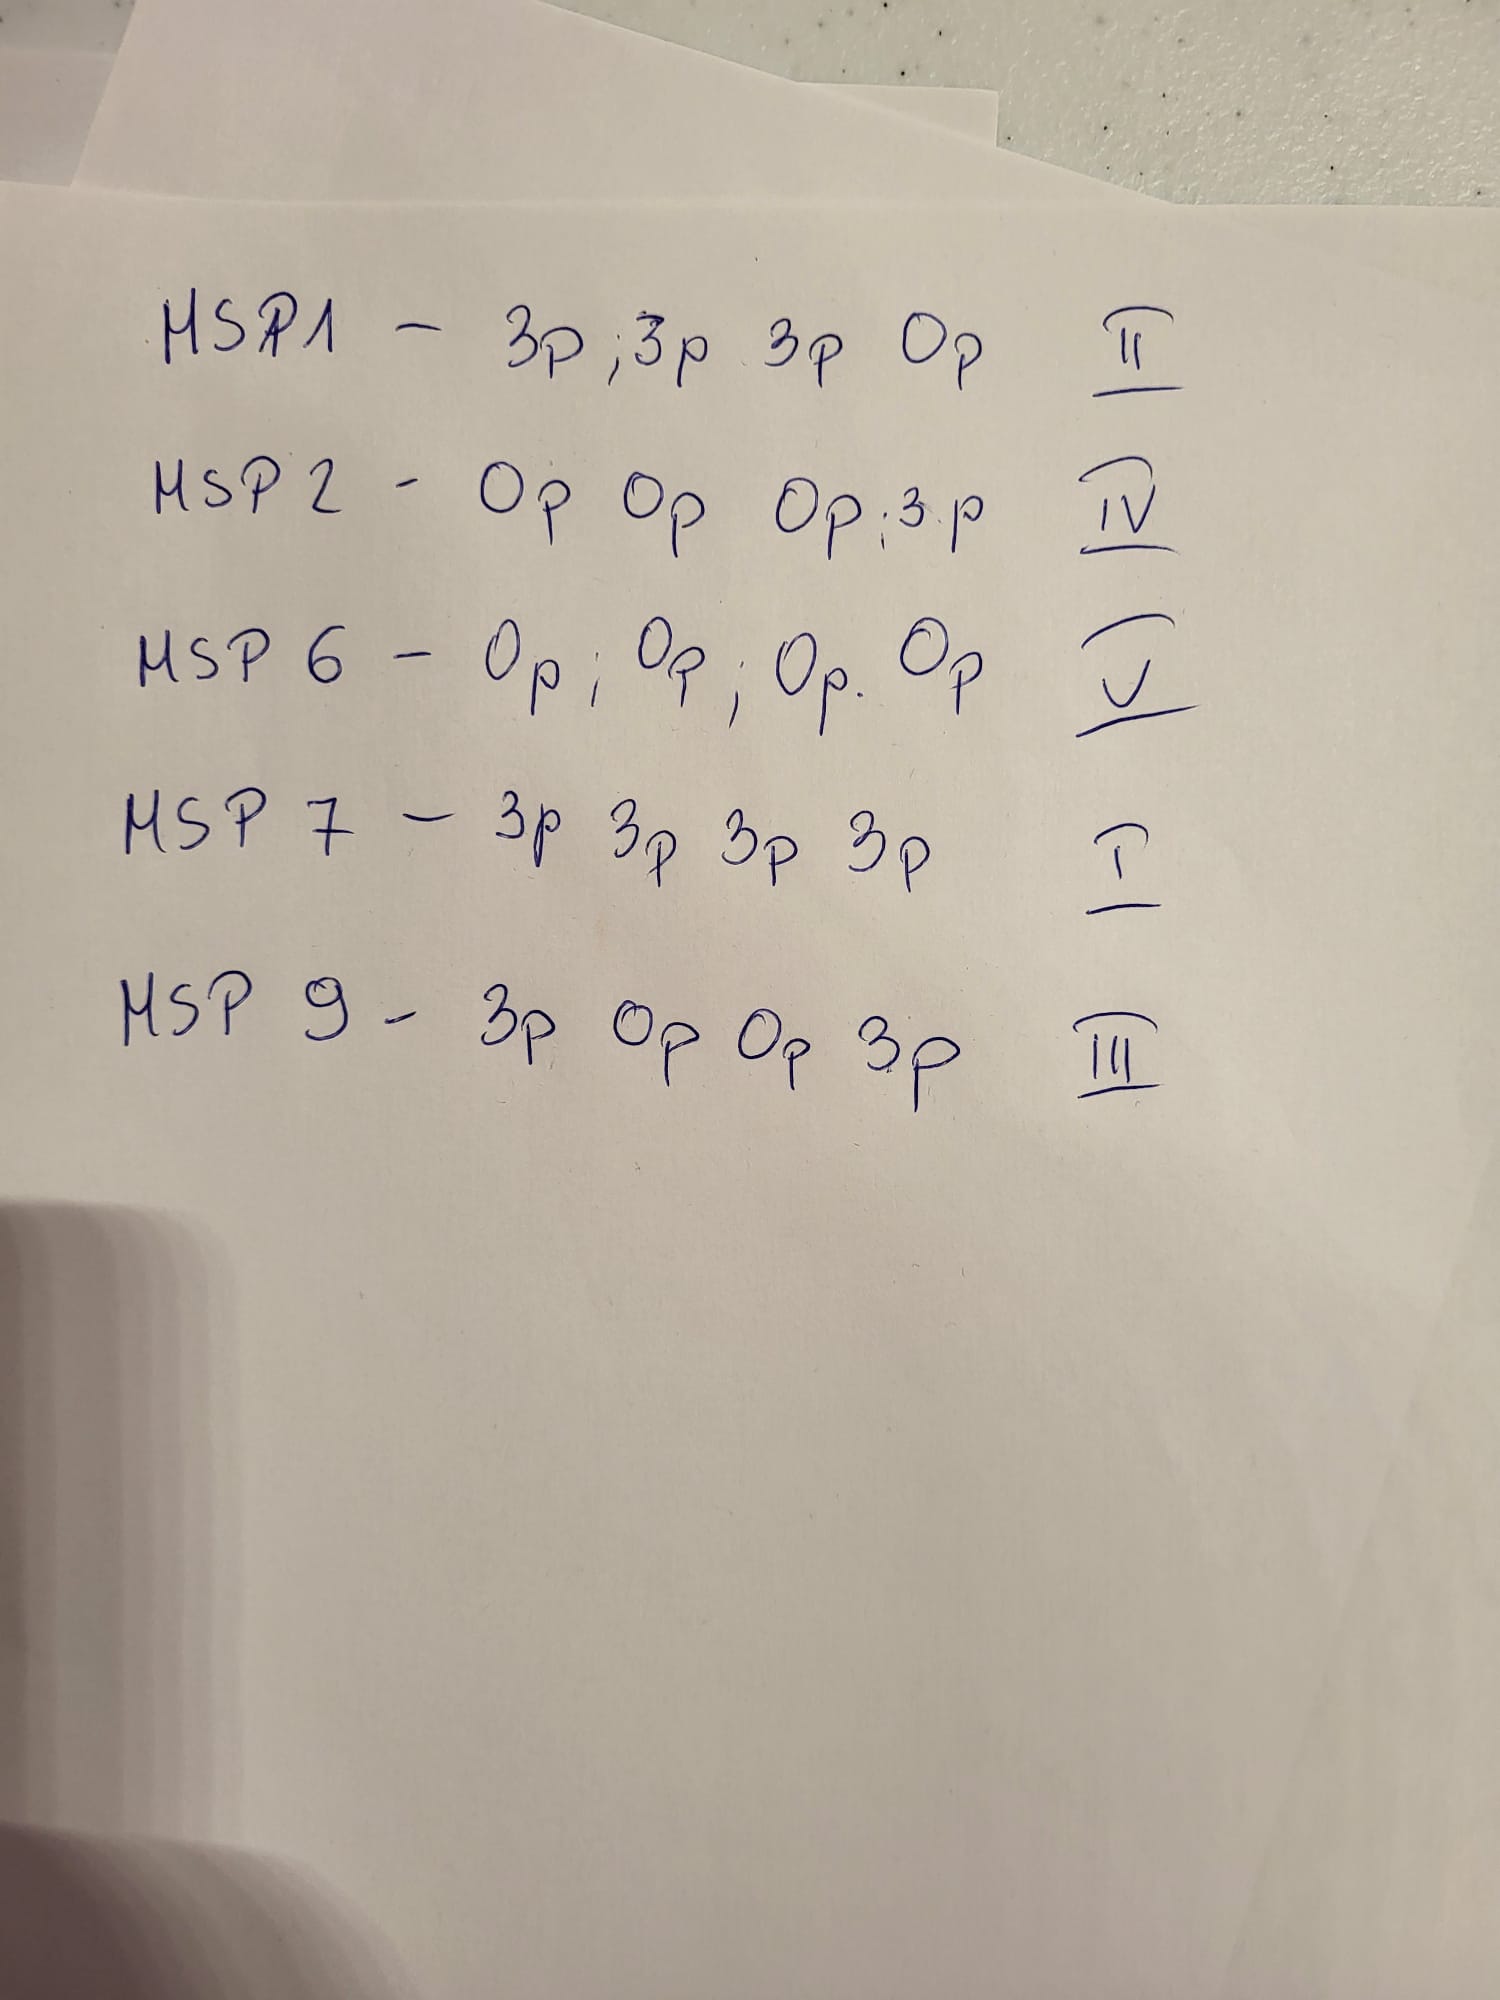 MSP1 - 3p ; 3p 3p 0p II
MSP 2 - 0p 0p 0p ; 3p IV
MSP 6 - 0p ; 0p ; 0p. 0p V
MSP 7 - 3p 3p 3p 3p I
MSP 9 - 3p 0p 0p 3p III